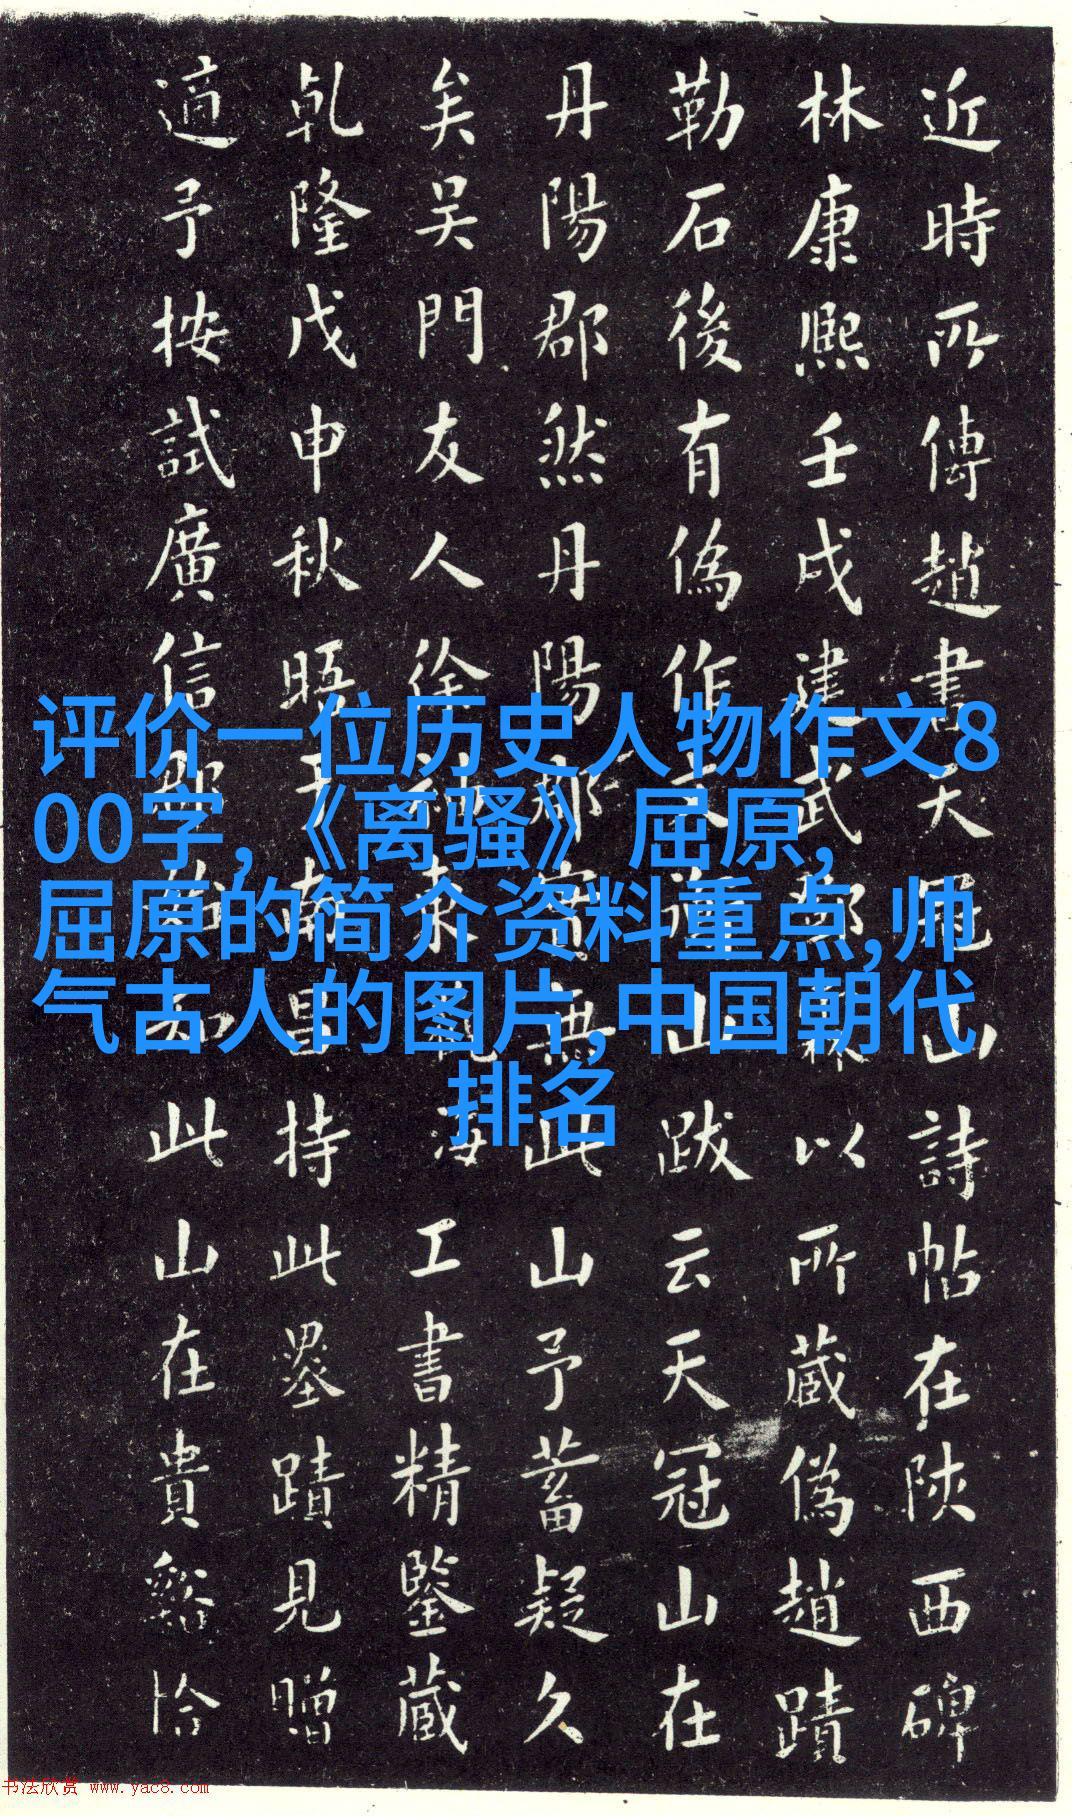 近時所傳趙書天山詩帖在陝西碑
林康熙壬戌建武鄭霖以所藏偽趙蹟
勒石後有偽作山跋云天冠山在
丹陽郡然丹陽郡實無此山予蓄疑久
矣吳門友人徐東海工書精鑒藏
乾隆戊申秋晤于南昌持此墨蹟見贈
適予按試廣信郡知此山在貴谿恰
评价一位历史人物作文8
00字,《离骚》屈原,
屈原的简介资料重点,帅
气古人的图片,中国朝代
排名
书法欣赏 www.yac8.com